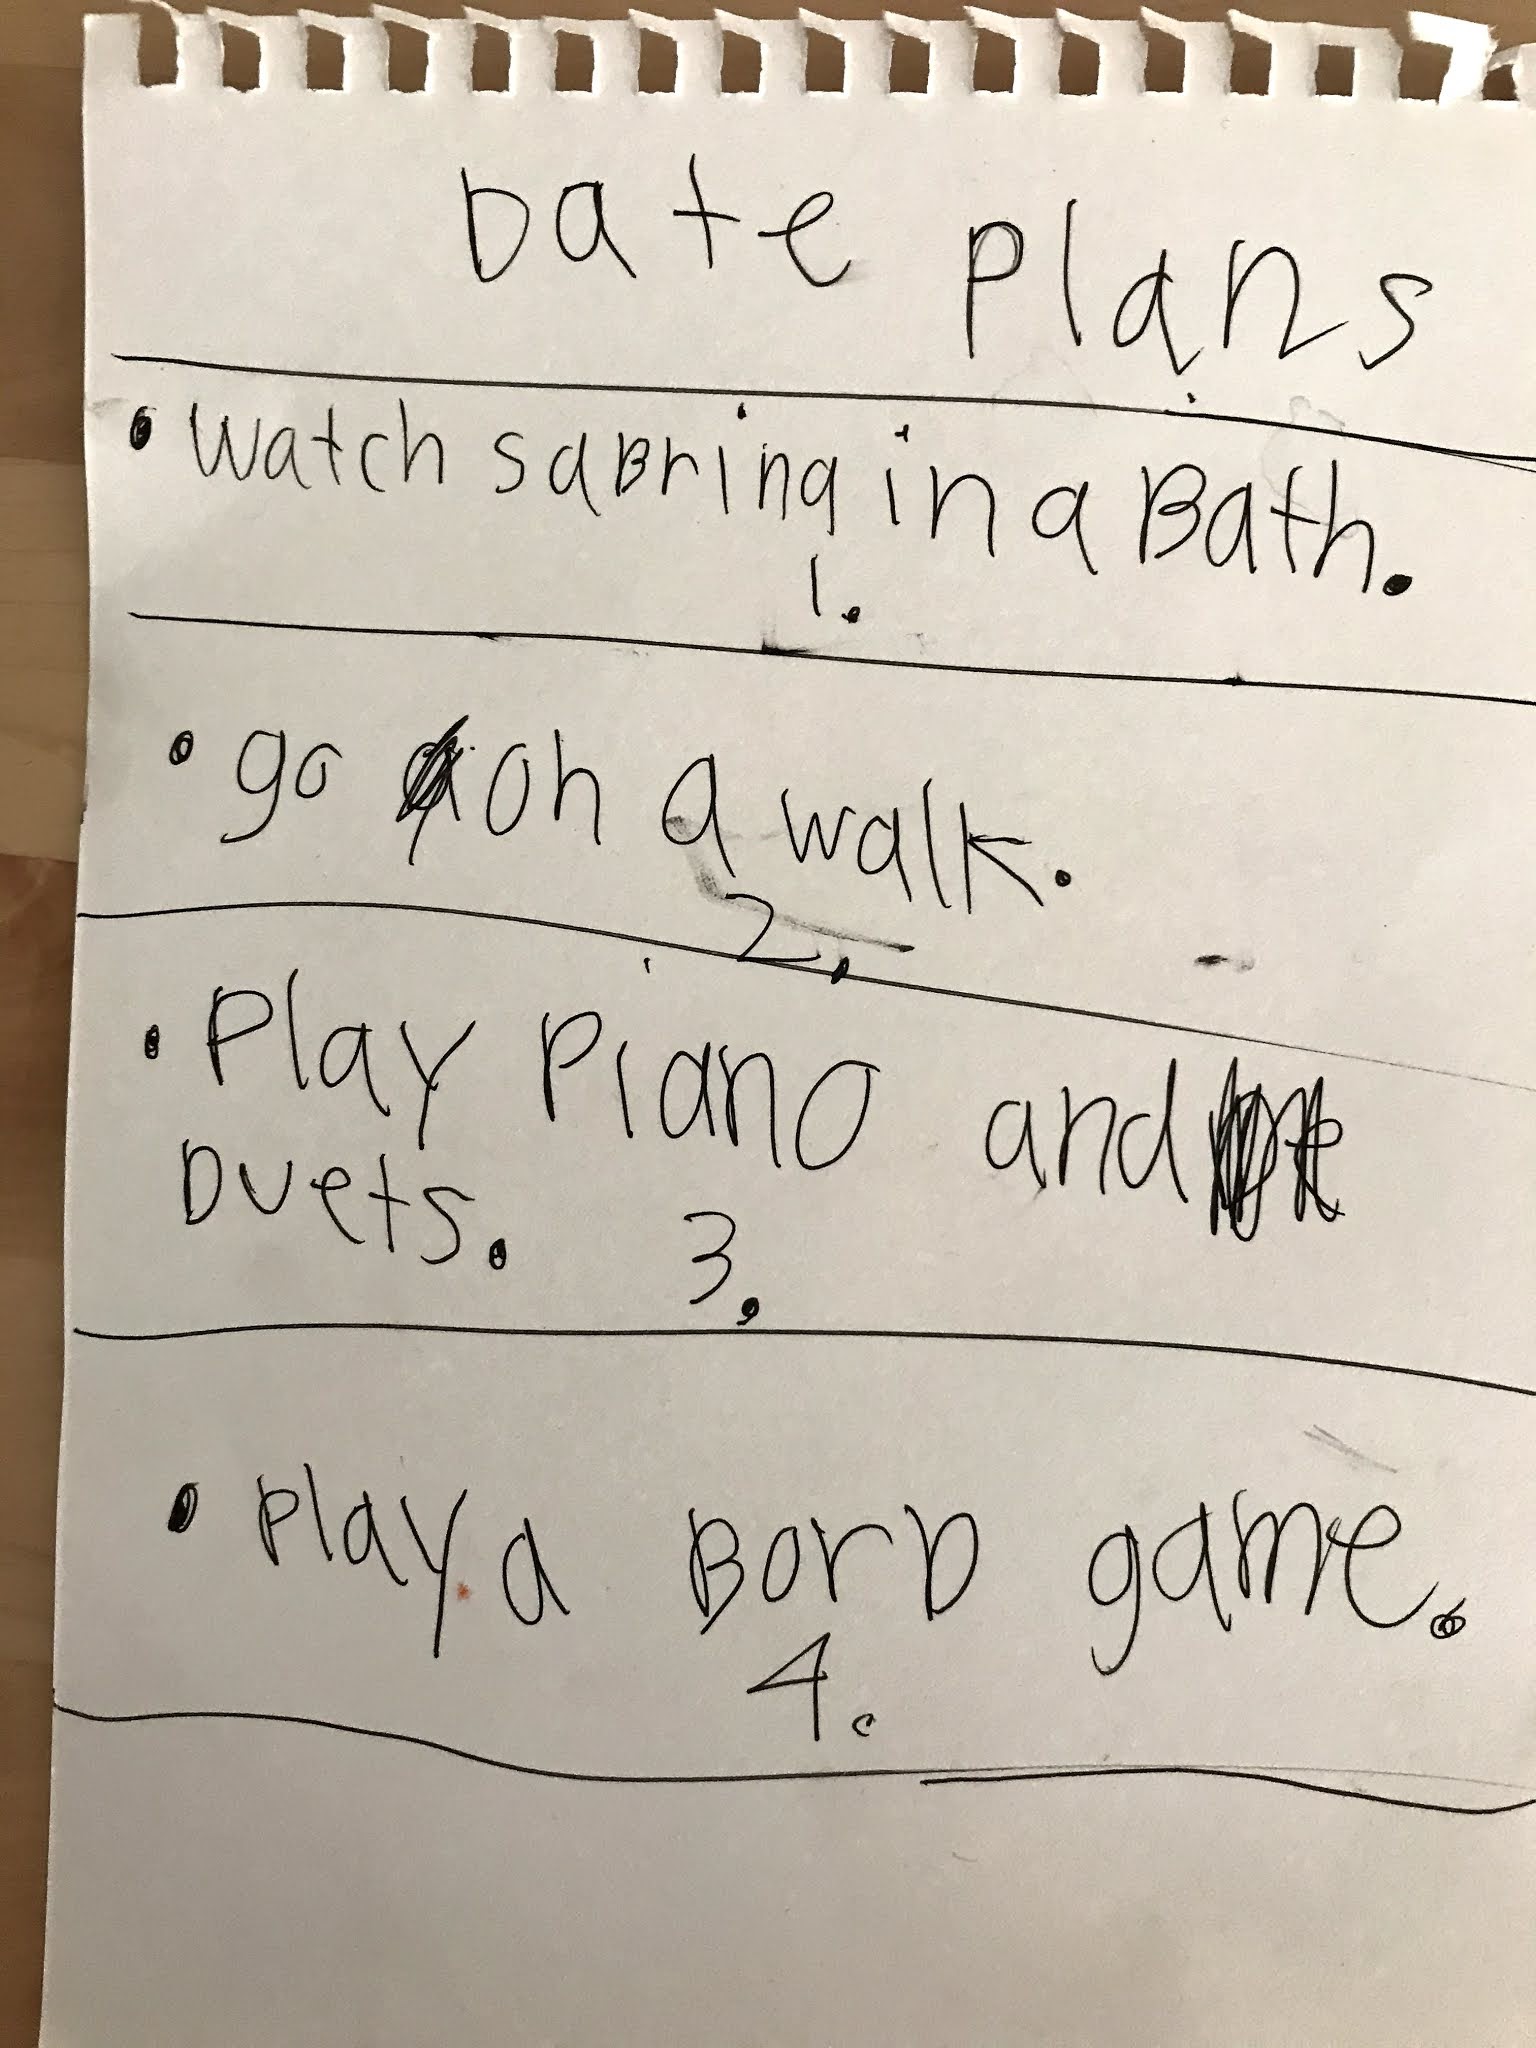 Date Plans
• watch saBrina in a Bath.
1.
• go on a walk.
2.
• Play Piano and
Duets. 3.
• Play a BorD game.
4.